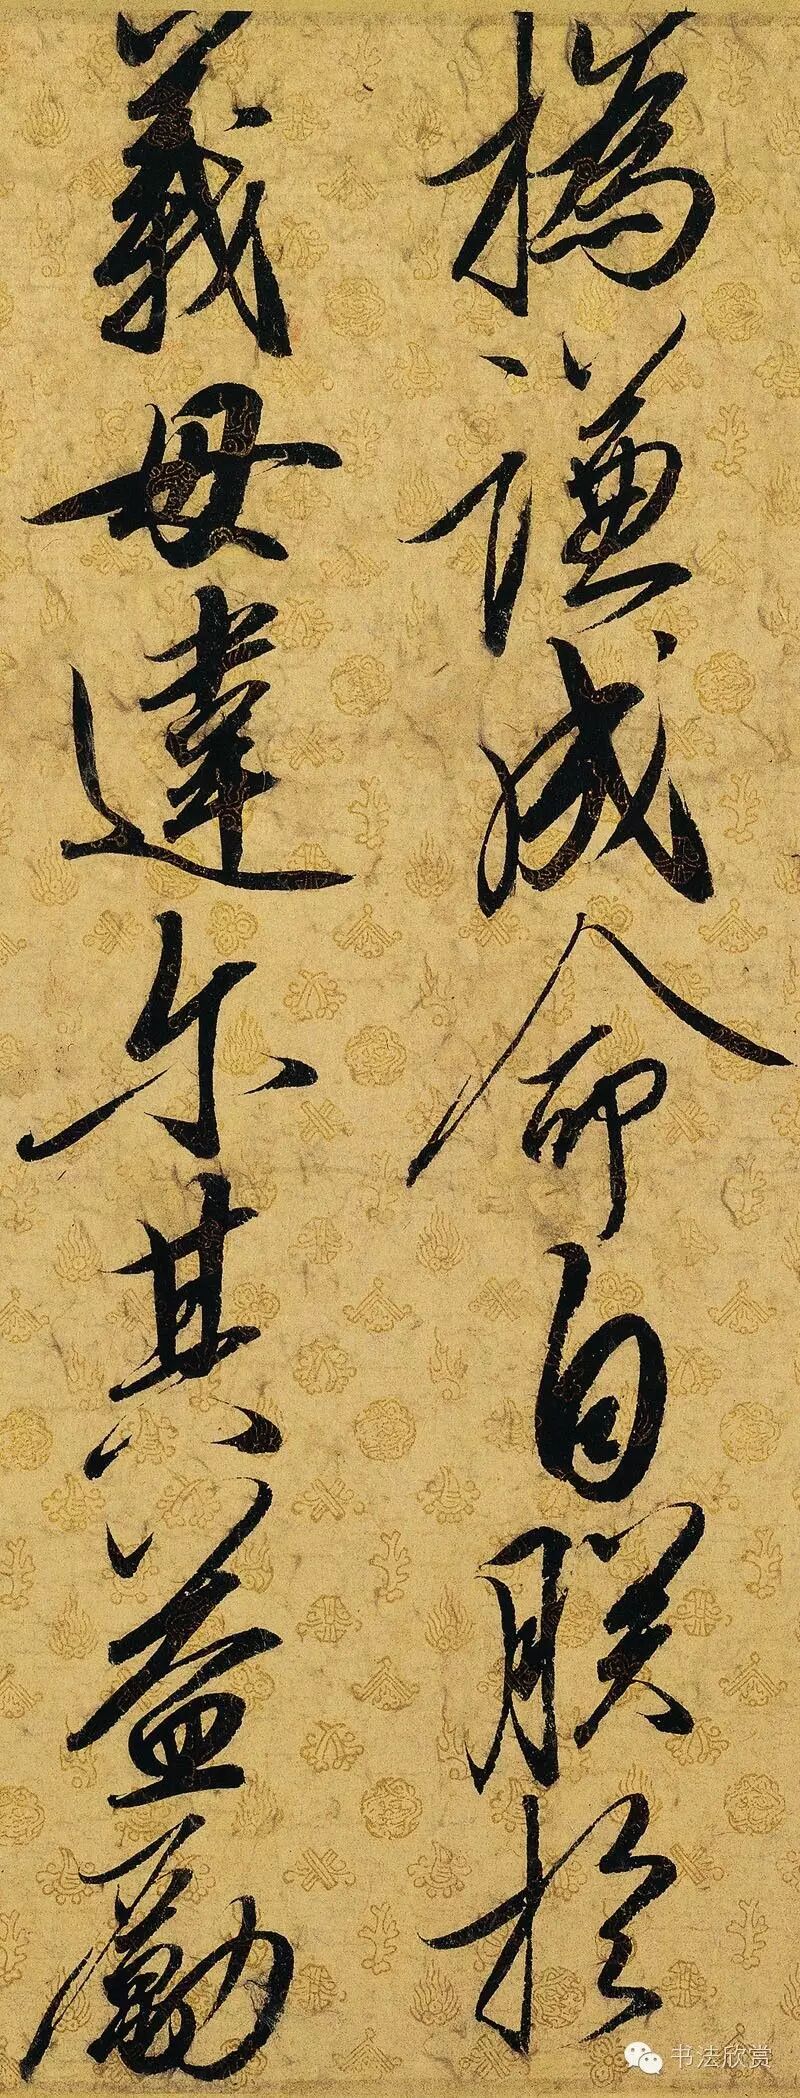 撝谦成命自朕於
義毋違尔其益勵
书法欣赏